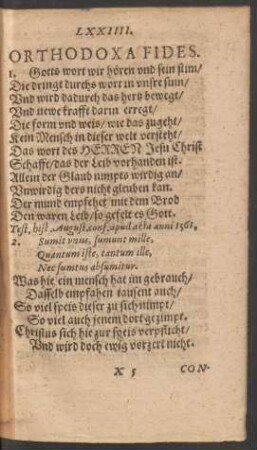 LXXIIII.
ORTHODOXA FIDES.
1. Gotts wort wir hören vnd sein stim/
Die dringt durchs wort in vnsre sinn/
Vnd wird dadurch das hertz bewegt/
Vnd newe krafft darin erregt/
Die form vnd weis/ wie das zugeht/
Kein Mensch in dieser welt versteht/
Das wort des HERREN Jesu Christ
Schafft/ das der Leib vorhanden ist.
Allein der Glaub nimpts wirdig an/
Vnwirdig ders nicht gleuben kan.
Der mund empfehet mit dem Brod
Den waren Leib/ so gefelt es Gott.
Test. hist. August. conf. apud acta anni 1561.
2. Sumit vnus, sumunt mille,
Quantum iste, tantum ille,
Nec sumtus absumitur.
Was hie ein mensch hat im gebrauch/
Dasselb empfahen tausent auch/
So viel speis dieser zu sich nimpt/
So viel auch jenem dort gezimpt.
Christus sich hie zur speis verpflicht/
Vnd wird doch ewig verzert nicht.
X 5 CON-